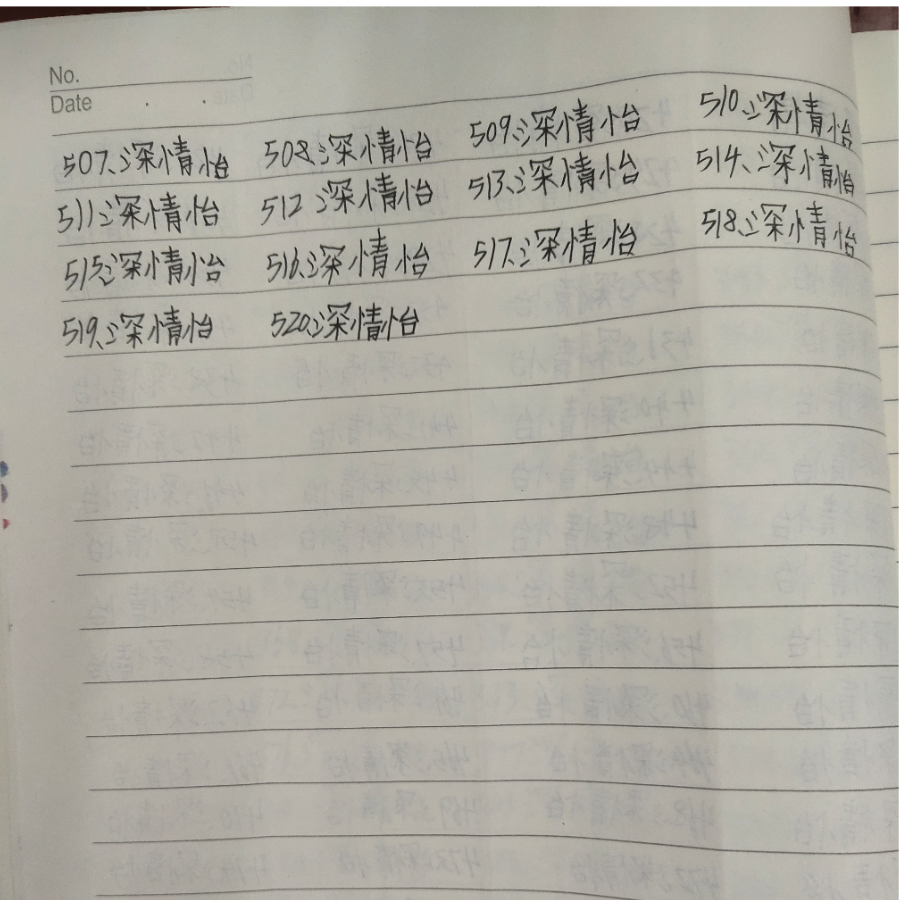 No.
Date
507、深情怡 508、深情怡 509、深情怡 510、深情怡
511、深情怡 512 深情怡 513、深情怡 514、深情怡
515、深情怡 516、深情怡 517、深情怡 518、深情怡
519、深情怡 520、深情怡